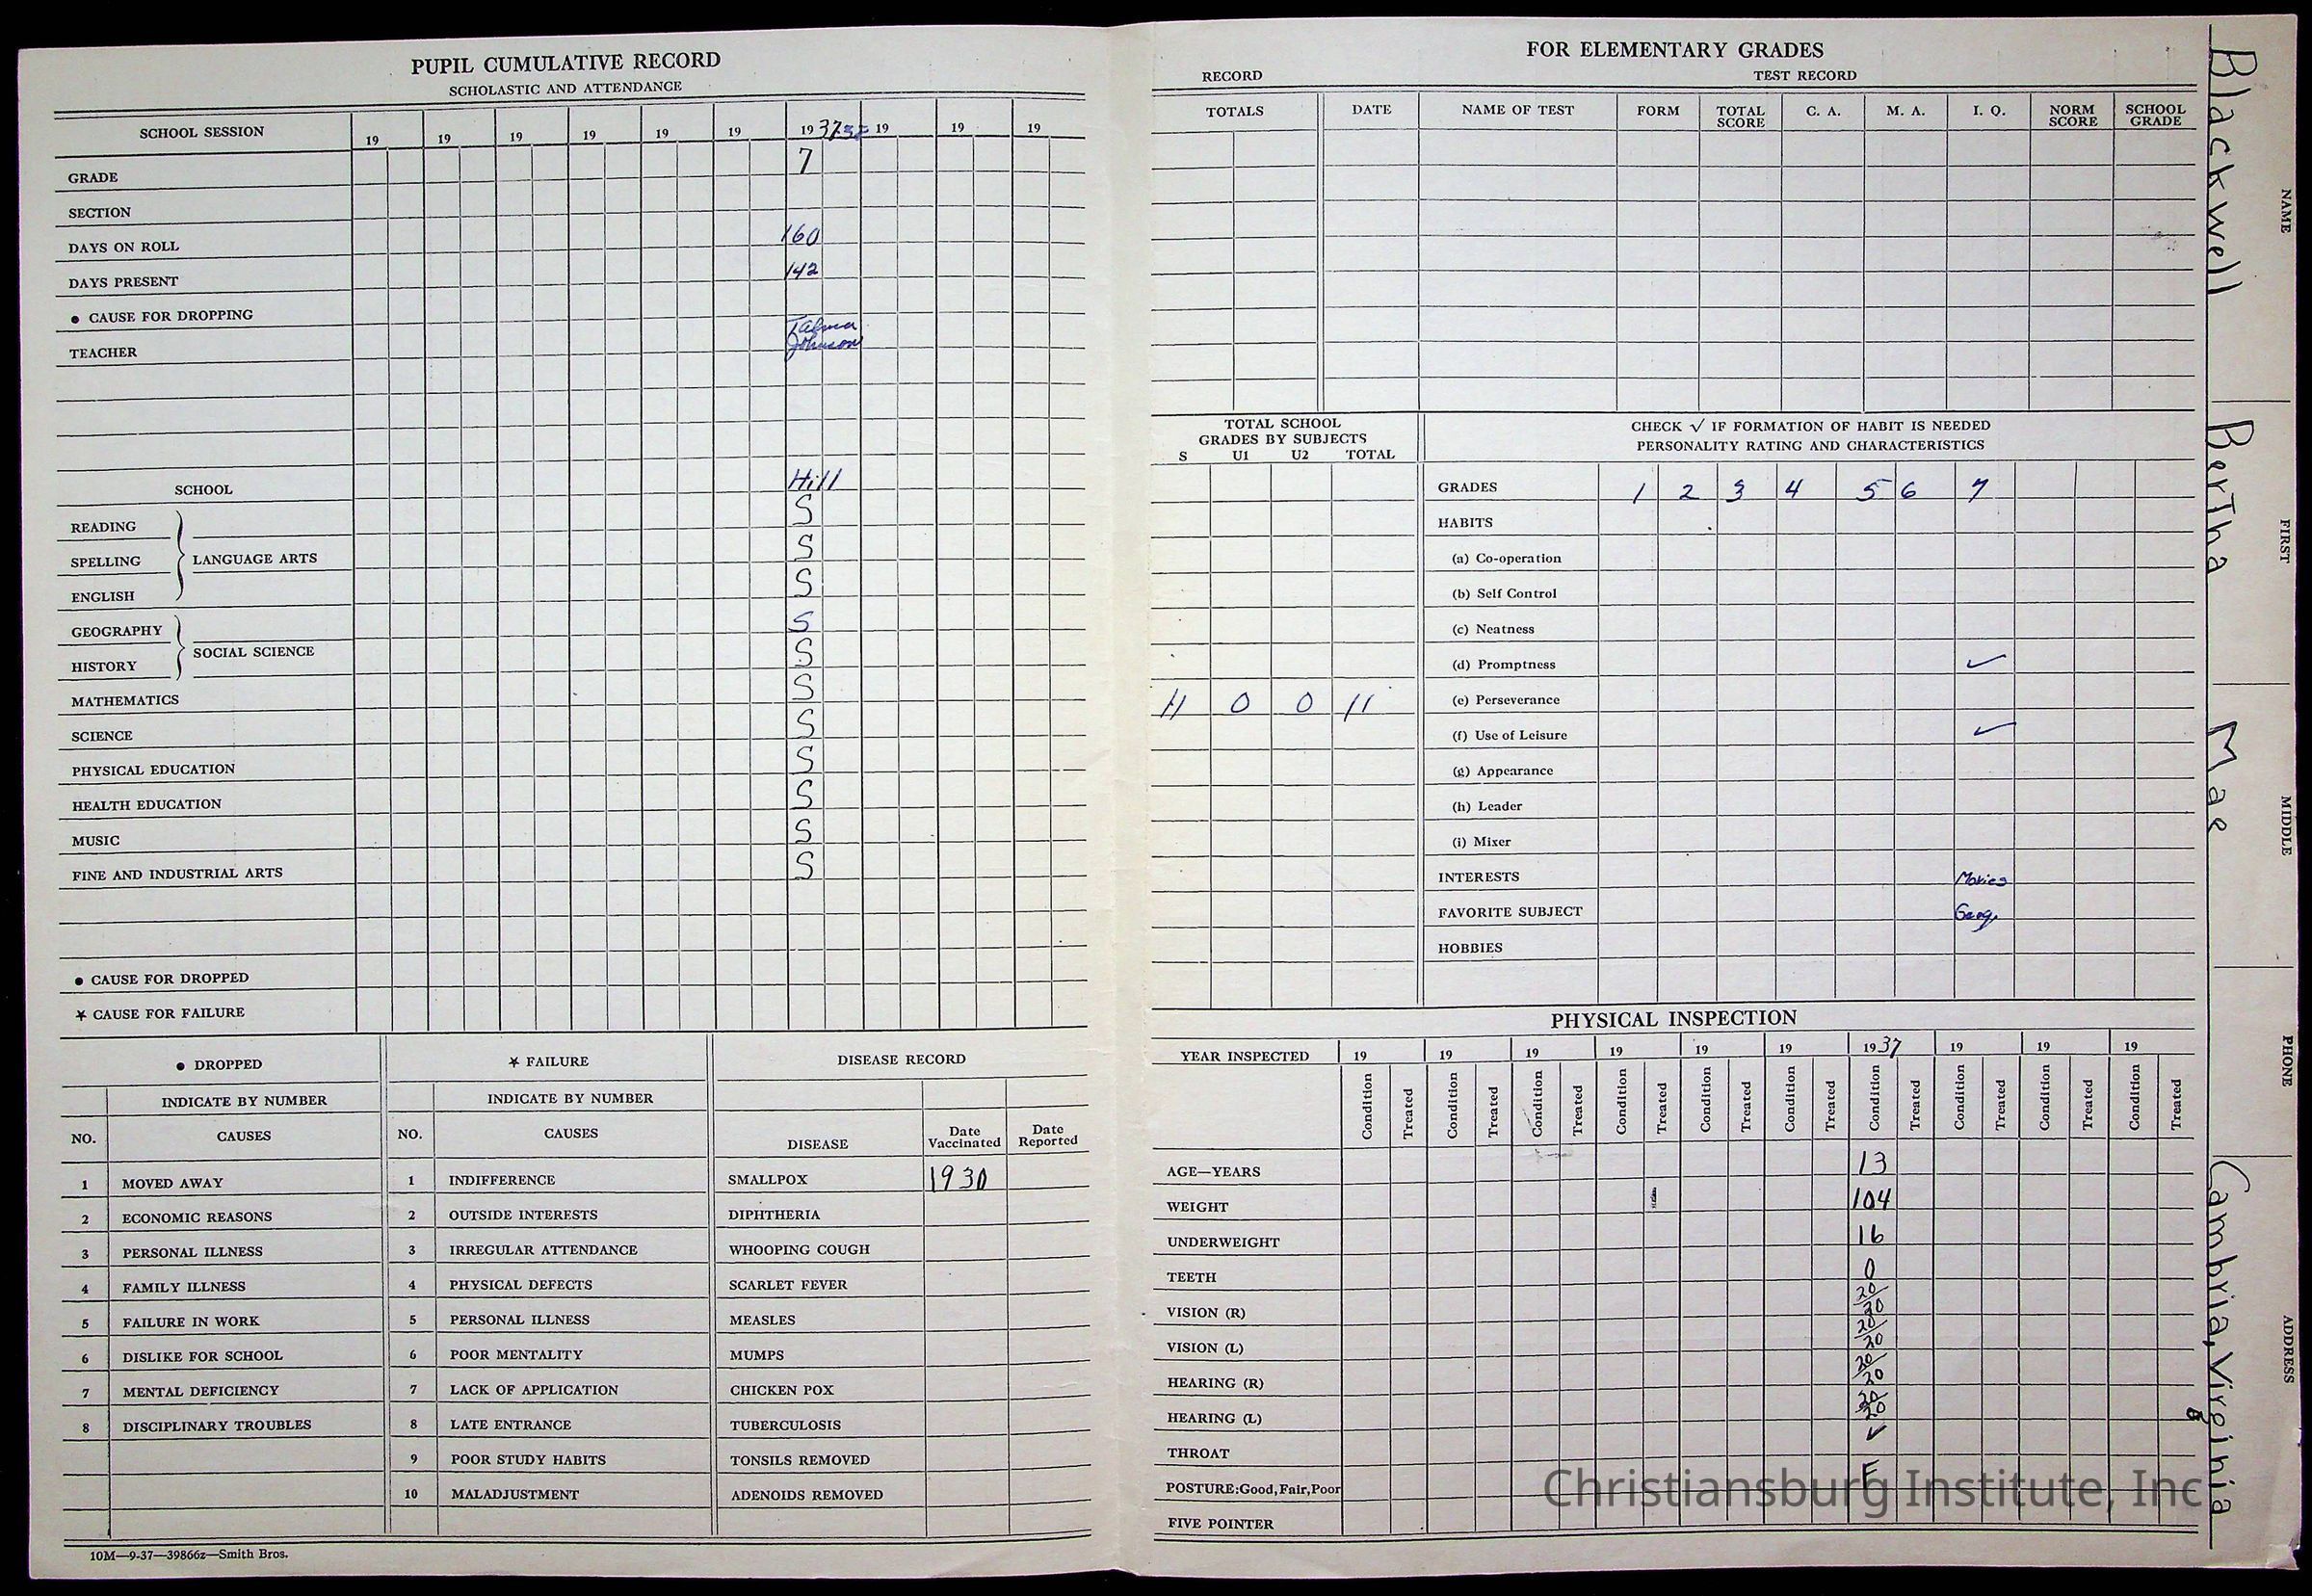 PUPIL CUMULATIVE RECORD
SCHOLASTIC AND ATTENDANCE
SCHOOL SESSION 19 19 19 19 19 19 19 37-38 19 19 19
GRADE 7
SECTION
DAYS ON ROLL 160
DAYS PRESENT 142
● CAUSE FOR DROPPING
TEACHER Johnson
SCHOOL Hill
READING S
SPELLING LANGUAGE ARTS S
ENGLISH S
GEOGRAPHY S
SOCIAL SCIENCE
HISTORY S
MATHEMATICS S
SCIENCE S
PHYSICAL EDUCATION S
HEALTH EDUCATION S
MUSIC S
FINE AND INDUSTRIAL ARTS S
● CAUSE FOR DROPPED
★ CAUSE FOR FAILURE
● DROPPED
INDICATE BY NUMBER
NO. CAUSES
1 MOVED AWAY
2 ECONOMIC REASONS
3 PERSONAL ILLNESS
4 FAMILY ILLNESS
5 FAILURE IN WORK
6 DISLIKE FOR SCHOOL
7 MENTAL DEFICIENCY
8 DISCIPLINARY TROUBLES
★ FAILURE
INDICATE BY NUMBER
NO. CAUSES
1 INDIFFERENCE
2 OUTSIDE INTERESTS
3 IRREGULAR ATTENDANCE
4 PHYSICAL DEFECTS
5 PERSONAL ILLNESS
6 POOR MENTALITY
7 LACK OF APPLICATION
8 LATE ENTRANCE
9 POOR STUDY HABITS
10 MALADJUSTMENT
DISEASE RECORD
DISEASE Date Vaccinated Date Reported
SMALLPOX 1930
DIPHTHERIA
WHOOPING COUGH
SCARLET FEVER
MEASLES
MUMPS
CHICKEN POX
TUBERCULOSIS
TONSILS REMOVED
ADENOIDS REMOVED
10M—9-37—39866z—Smith Bros.
FOR ELEMENTARY GRADES
RECORD TEST RECORD
TOTALS DATE NAME OF TEST FORM TOTAL SCORE C. A. M. A. I. Q. NORM SCORE SCHOOL GRADE
TOTAL SCHOOL
GRADES BY SUBJECTS
S U1 U2 TOTAL
11 0 0 11
CHECK ✓ IF FORMATION OF HABIT IS NEEDED
PERSONALITY RATING AND CHARACTERISTICS
GRADES 1 2 3 4 5 6 7
HABITS
(a) Co-operation
(b) Self Control
(c) Neatness
(d) Promptness ✓
(e) Perseverance
(f) Use of Leisure ✓
(g) Appearance
(h) Leader
(i) Mixer
INTERESTS Movies
FAVORITE SUBJECT Geog.
HOBBIES
PHYSICAL INSPECTION
YEAR INSPECTED 19 19 19 19 19 19 1937 19 19 19
Condition Treated Condition Treated Condition Treated Condition Treated Condition Treated Condition Treated Condition Treated Condition Treated Condition Treated Condition Treated
AGE—YEARS 13
WEIGHT 104
UNDERWEIGHT 16
TEETH 0
VISION (R) 20/20
VISION (L) 20/20
HEARING (R) 20/20
HEARING (L) 20/20
THROAT ✓
POSTURE:Good,Fair,Poor F
FIVE POINTER
NAME FIRST MIDDLE PHONE ADDRESS
Blackwell Bertha Mae Cambria, Virginia
Christiansburg Institute, Inc